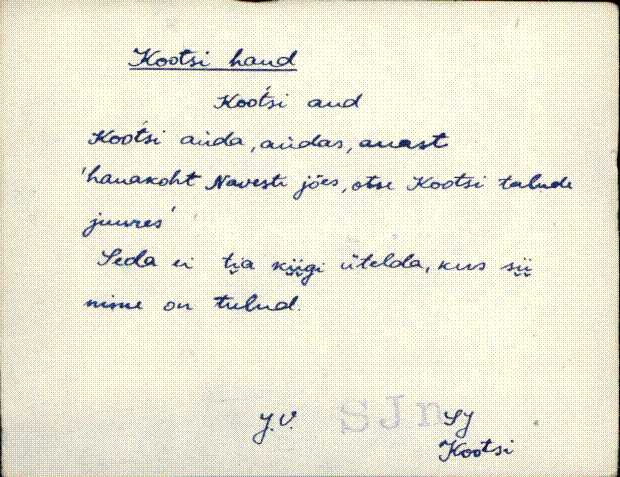 Kootsi haud
Koot́si aud
Koot́si aùda, aùdas, auast
'hauakoht Navesti jões, otse Kootsi talude
juures'
Seda ei ti̬a ki̬i̬gi ütelda, kus si̬i̬
nime on tulnd.
J.V. SJn SJ
Kootsi